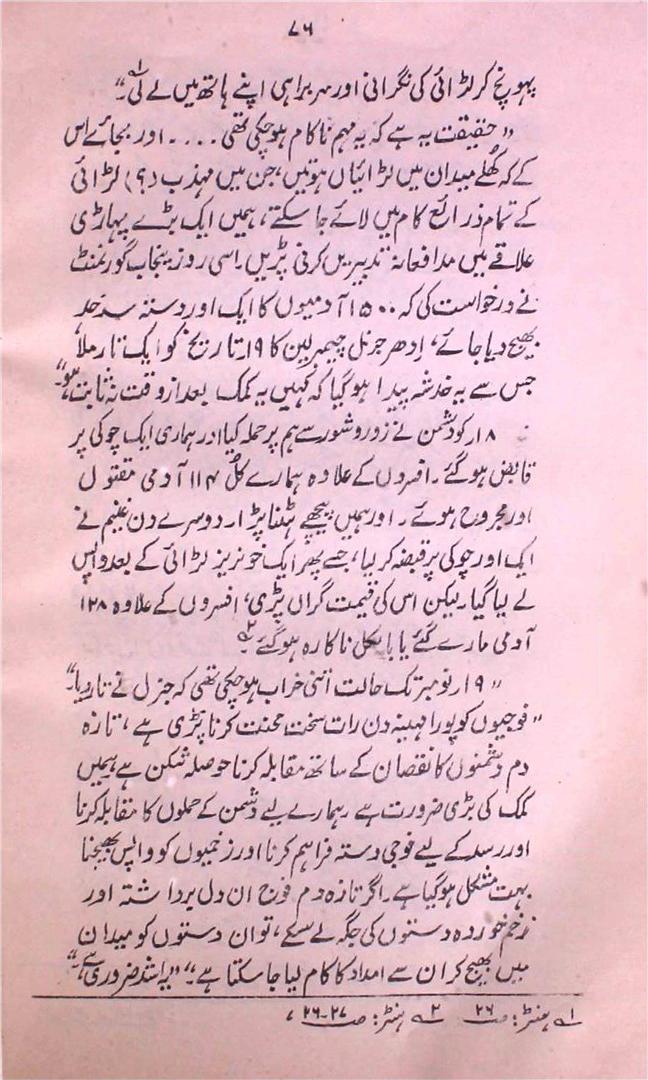 ۷۶
پہونچ کر لڑائی کی نگرانی اور سربراہی اپنے ہاتھ میں لے لی۔؎۱"
"حقیقت یہ ہے کہ یہ مہم ناکام ہوچکی تھی .... اور بجائے اس
کے کہ کھلے میدان میں لڑائیاں ہوتیں، جن میں مہذب (؟) لڑائی
کے تمام ذرائع کام میں لائے جا سکتے، ہمیں ایک بڑے پہاڑی
علاقے میں مدافعانہ تدبیریں کرنی پڑیں۔ اسی روز پنجاب گورنمنٹ
نے درخواست کی کہ ۱۵۰۰ آدمیوں کا ایک اور دستہ سرحد
بھیج دیا جائے، ادھر جنرل چیمبرلین کا ۱۹ تاریخ کو ایک تار ملا،
جس سے یہ خدشہ پیدا ہوگیا کہ کہیں یہ کمک بعد از وقت نہ ثابت ہو۔"
۱۸ کو دشمن نے زور و شور سے ہم پر حملہ کیا اور ہماری ایک چوکی پر
قابض ہوگئے۔ افسروں کے علاوہ ہمارے کل ۱۱۴ آدمی مقتول
اور مجروح ہوئے۔ اور ہمیں پیچھے ہٹنا پڑا۔ دوسرے دن غنیم نے
ایک اور چوکی پر قبضہ کر لیا، جسے پھر ایک خونریز لڑائی کے بعد واپس
لے لیا گیا۔ لیکن اس کی قیمت گراں پڑی، افسروں کے علاوہ ۱۲۸
آدمی مارے گئے یا بالکل ناکارہ ہوگئے؎۲
"۱۹ نومبر تک حالت اتنی خراب ہوچکی تھی کہ جنرل نے تار دیا۔"
"فوجیوں کو پورا مہینہ دن رات سخت محنت کرنا پڑی ہے، تازہ
دم دشمنوں کا نقصان کے ساتھ مقابلہ کرنا حوصلہ شکن ہے ہمیں
کمک کی بڑی ضرورت ہے۔ ہمارے لیے دشمن کے حملوں کا مقابلہ کرنا
اور رسد کے لیے فوجی دستہ فراہم کرنا اور زخمیوں کو واپس بھیجنا
بہت مشکل ہوگیا ہے۔ اگر تازہ دم فوج ان دل برداشتہ اور
زخم خوردہ دستوں کی جگہ لے سکے، تو ان دستوں کو میدان
میں بھیج کر ان سے امداد کا کام لیا جا سکتا ہے۔" "یہ اشد ضروری ہے۔"
؎۱ ہنٹر: ص ۲۶ ؎۲ ہنٹر: ص ۲۷-۲۶،